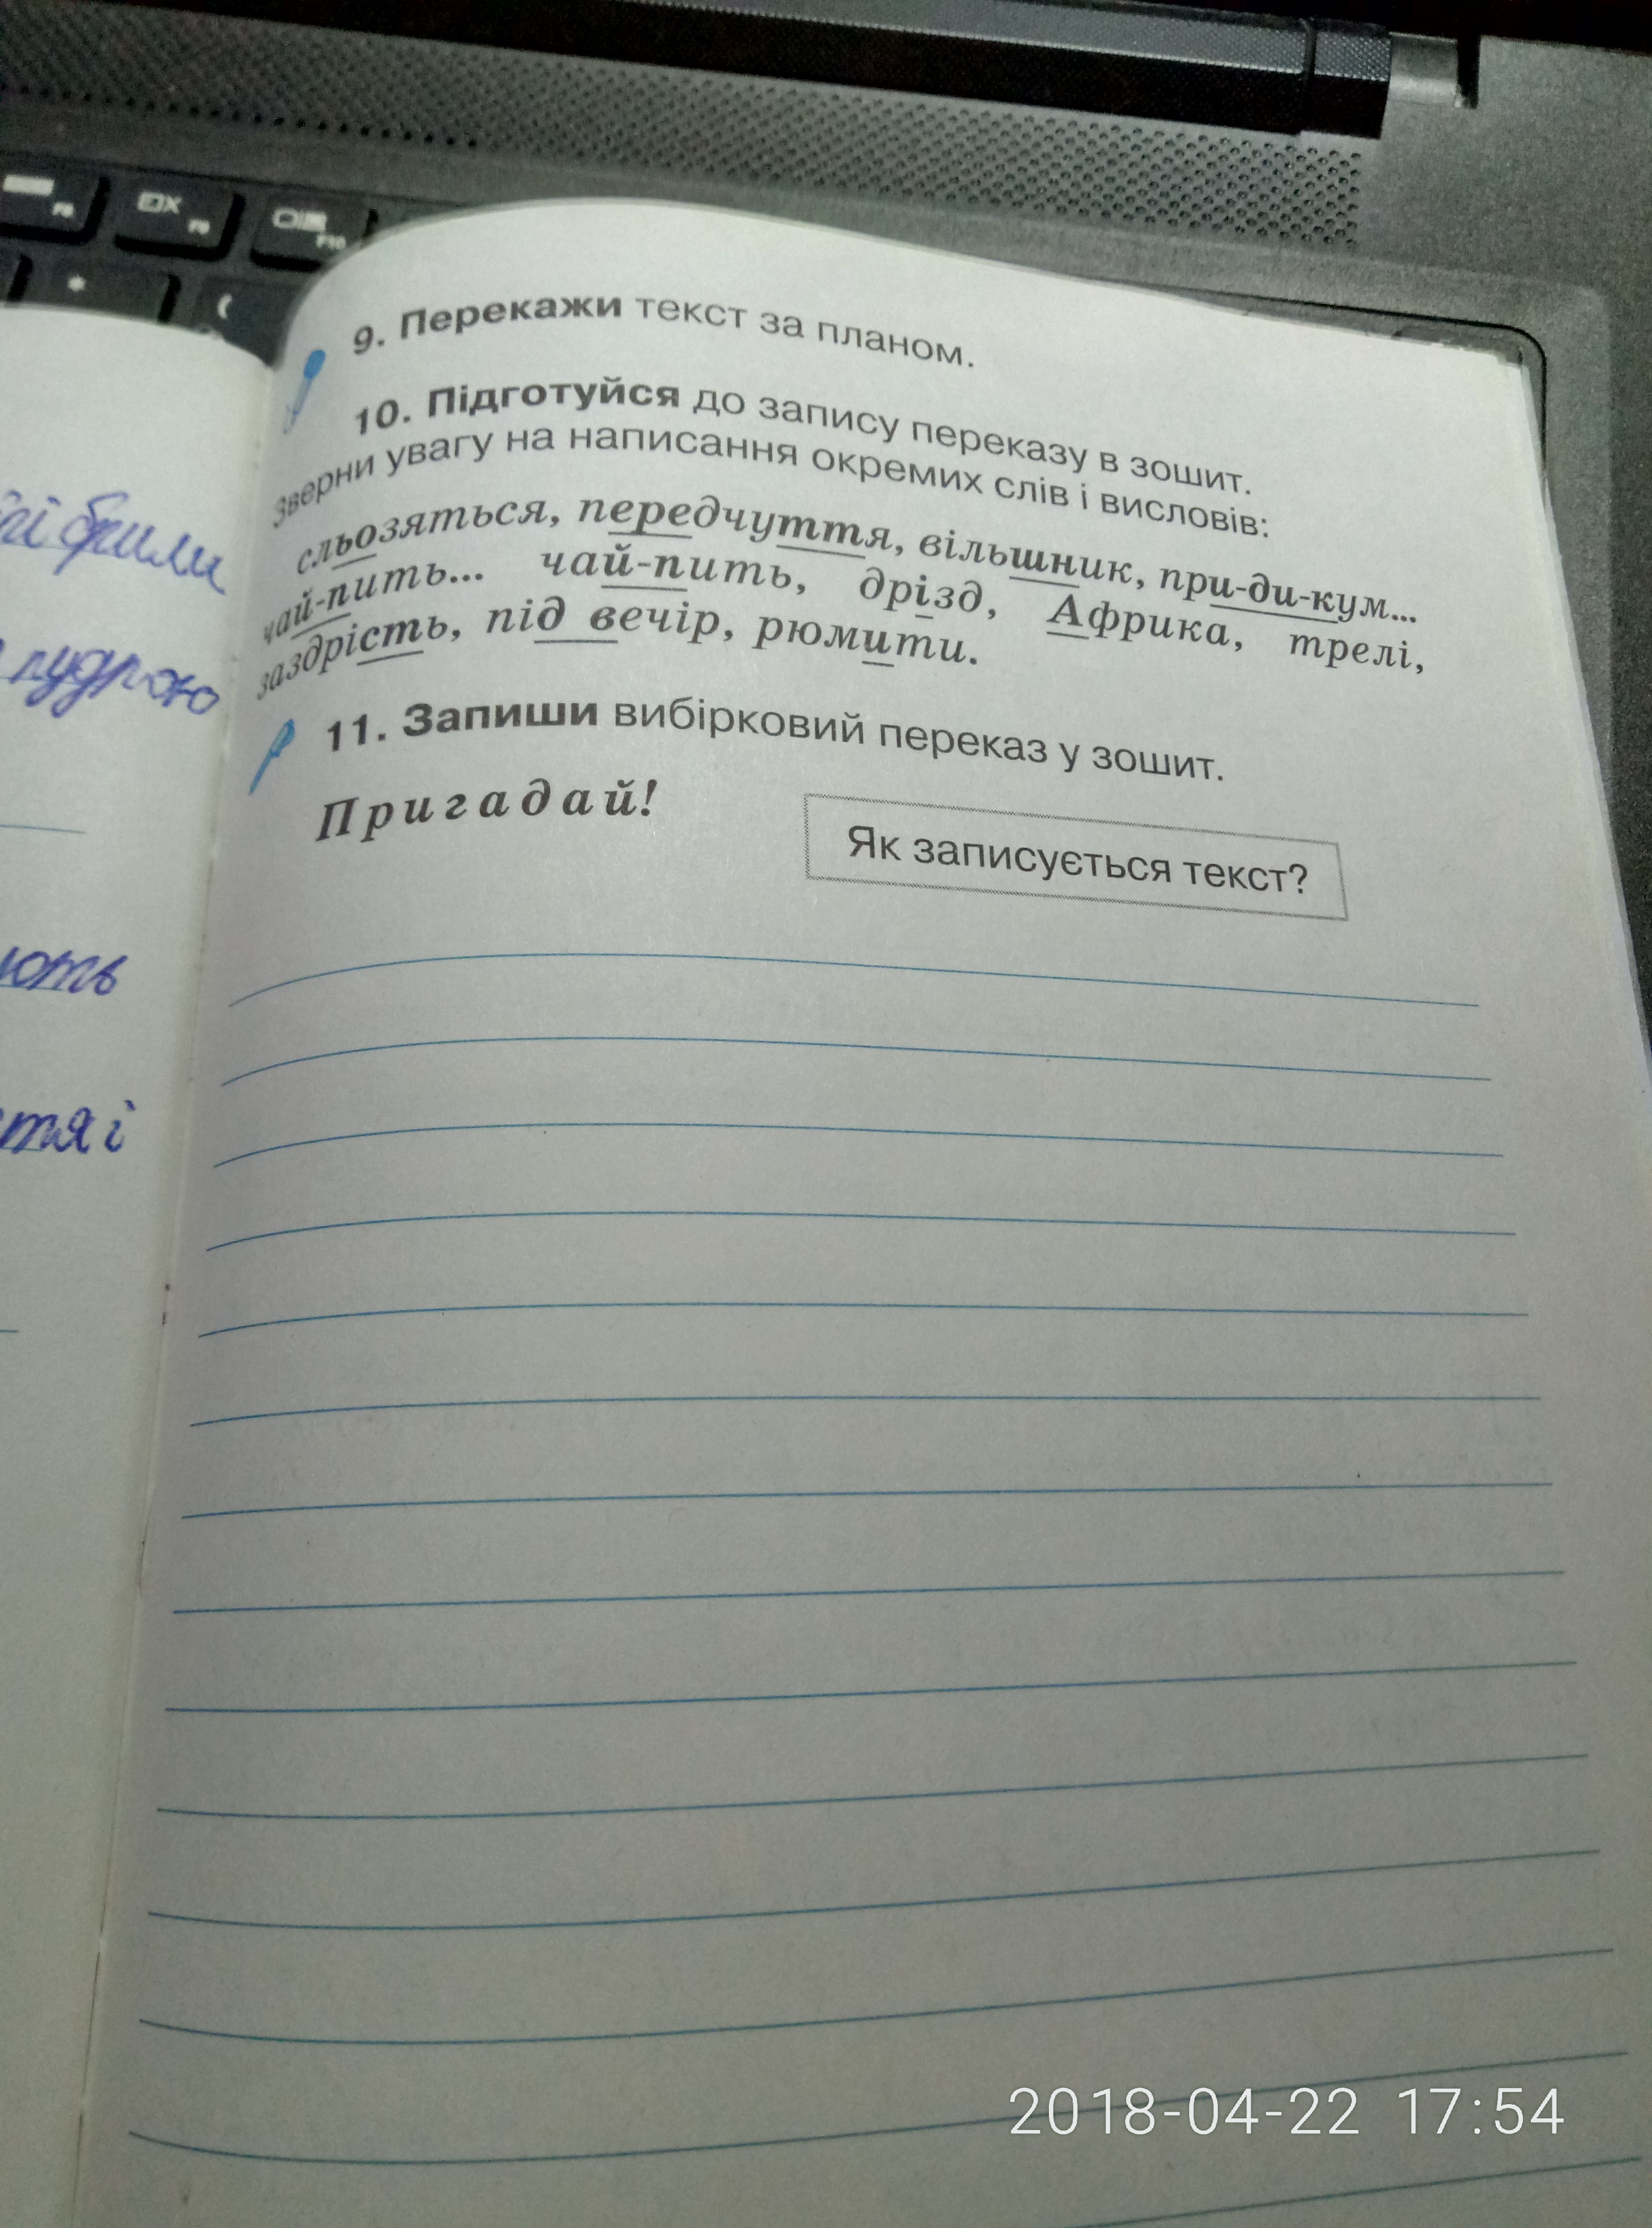 F8
F9
F10
*
(
9. Перекажи текст за планом.
10. Підготуйся до запису переказу в зошит.
Зверни увагу на написання окремих слів і висловів:
сльозяться, передчуття, вільшник, при-ди-кум...
чай-пить... чай-пить, дрізд, Африка, трелі,
заздрість, під вечір, рюмити.
11. Запиши вибірковий переказ у зошит.
Пригадай!
Як записується текст?
пудрою
ють
тя і
2018-04-22 17:54